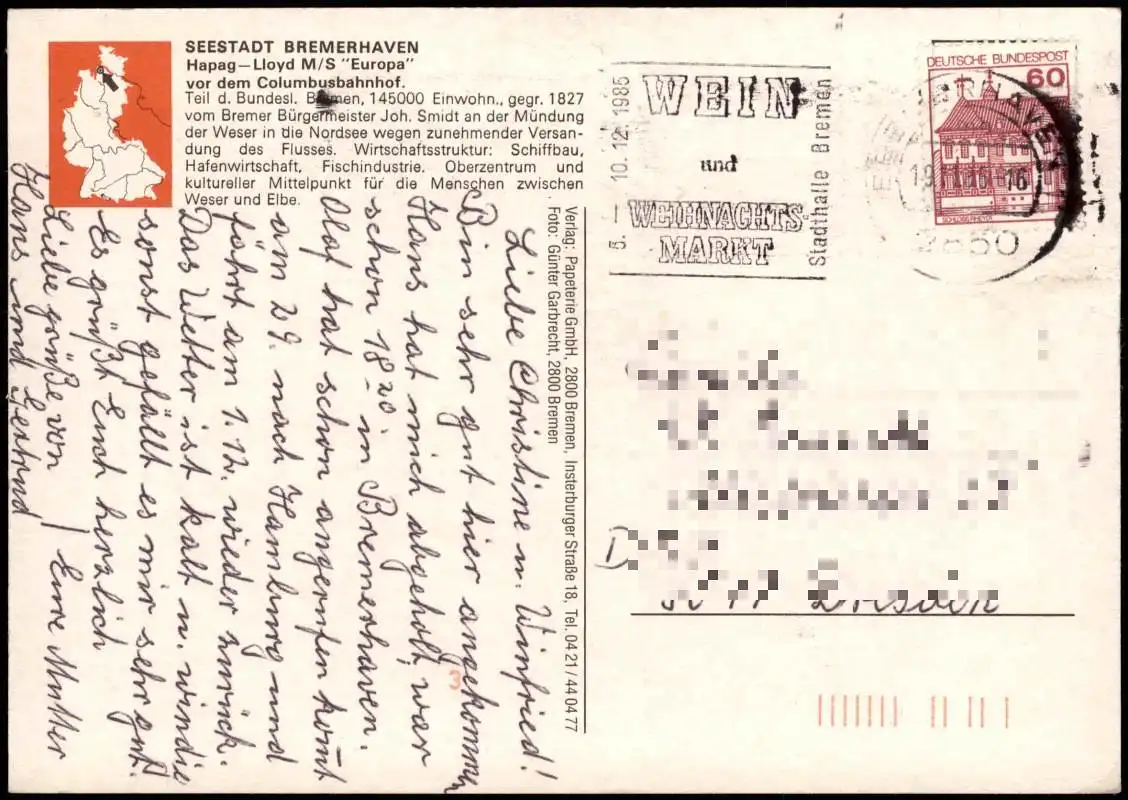 SEESTADT BREMERHAVEN
Hapag–Lloyd M/S "Europa"
vor dem Columbusbahnhof.
Teil d. Bundesl. Bremen, 145000 Einwohn., gegr. 1827
vom Bremer Bürgermeister Joh. Smidt an der Mündung
der Weser in die Nordsee wegen zunehmender Versan-
dung des Flusses. Wirtschaftsstruktur: Schiffbau,
Hafenwirtschaft, Fischindustrie. Oberzentrum und
kultureller Mittelpunkt für die Menschen zwischen
Weser und Elbe.
Verlag: Papeterie GmbH, 2800 Bremen, Insterburger Straße 18, Tel. 04 21 / 44 04 77
Foto: Günter Garbrecht, 2800 Bremen
Liebe Christine u. Winfried!
Bin sehr gut hier angekommen
Hans hat mich abgeholt, war
schon 18 20 in Bremerhaven.
Olaf hat schon angerufen komt
am 29. nach Hamburg und
fährt am 1.12. wieder zurück.
Das Wetter ist kalt u. windig
sonst gefällt es mir sehr gut.
Es grüßt Euch herzlich
Eure Mutter
Liebe grüße von
Hans und Gertrud
5. – 10. 12. 1985
WEIN
und
WEIHNACHTS
MARKT
Stadthalle Bremen
DEUTSCHE BUNDESPOST
60
SCHLOSS RHEYDT
2850
D
Dresden
3